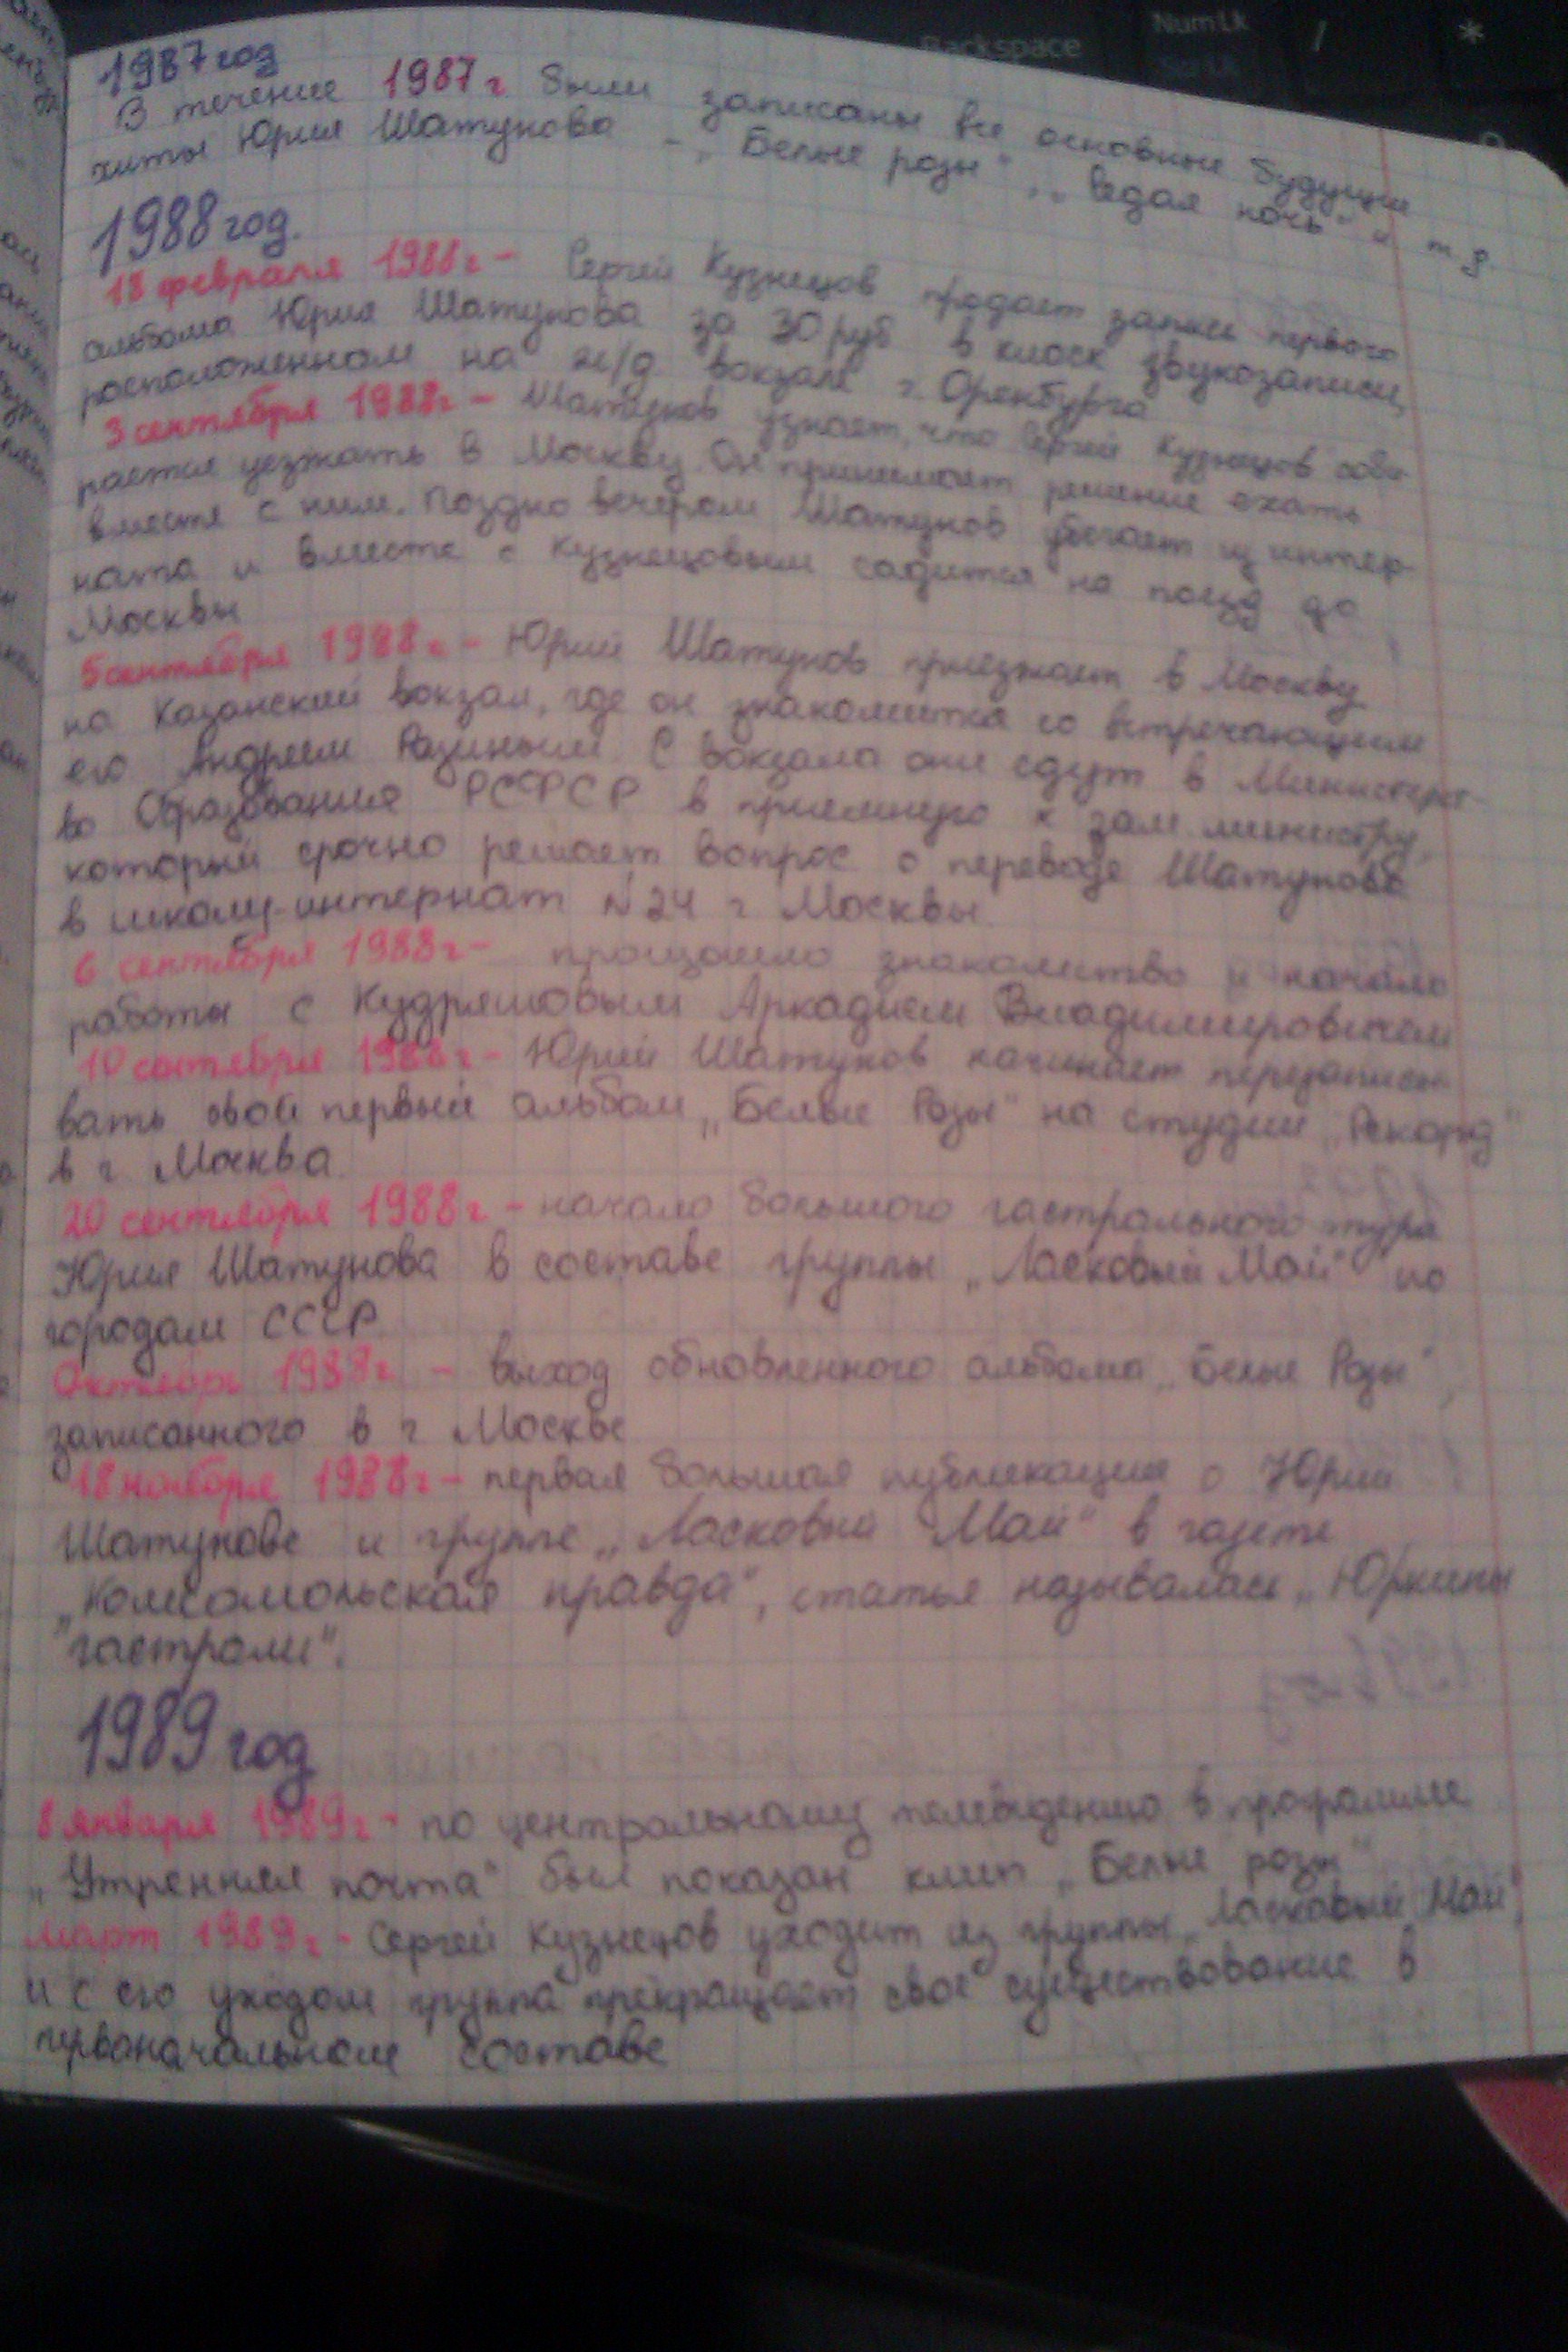 Backspace
NumLk
/
*
1987 год
В течение 1987 г были записаны все основные будущие
хиты Юрия Шатунова - „Белые розы", „Седая ночь" и т д.
1988 год.
18 февраля 1988 г - Сергей Кузнецов продает запись первого
альбома Юрия Шатунова за 30 руб в киоск звукозаписи,
расположенном на ж/д вокзале г. Оренбурга
3 сентября 1988 г - Шатунов узнает, что Сергей Кузнецов соби-
рается уезжать в Москву. Он принимает решение ехать
вместе с ним. Поздно вечером Шатунов убегает из интер-
ната и вместе с Кузнецовым садится на поезд до
Москвы
5 сентября 1988 г. - Юрий Шатунов приезжает в Москву
на Казанский вокзал, где он знакомится со встречающим
его Андреем Разиным. С вокзала они едут в Министерст-
во Образования РСФСР в приемную к зам. министру,
который срочно решает вопрос о переводе Шатунова
в школу-интернат №24 г Москвы
6 сентября 1988 г - произошло знакомство и начало
работы с Кудряшовым Аркадием Владимировичем
10 сентября 1988 г - Юрий Шатунов начинает перезаписы-
вать свой первый альбом „Белые Розы" на студии „Рекорд"
в г. Москва
20 сентября 1988 г - начало большого гастрольного тура
Юрия Шатунова в составе группы „Ласковый Май" по
городам СССР
Октябрь 1988 г - выход обновленного альбома „Белые Розы",
записанного в г Москве
18 ноября 1988 г - первая большая публикация о Юрии
Шатунове и группе „Ласковый Май" в газете
„Комсомольская правда", статья называлась „Юркины
гастроли".
1989 год
8 января 1989 г - по центральному телевидению в программе
„Утренняя почта" был показан клип „Белые розы"
Март 1989 г - Сергей Кузнецов уходит из группы „Ласковый Май",
и с его уходом группа прекращает свое существование в
первоначальном составе